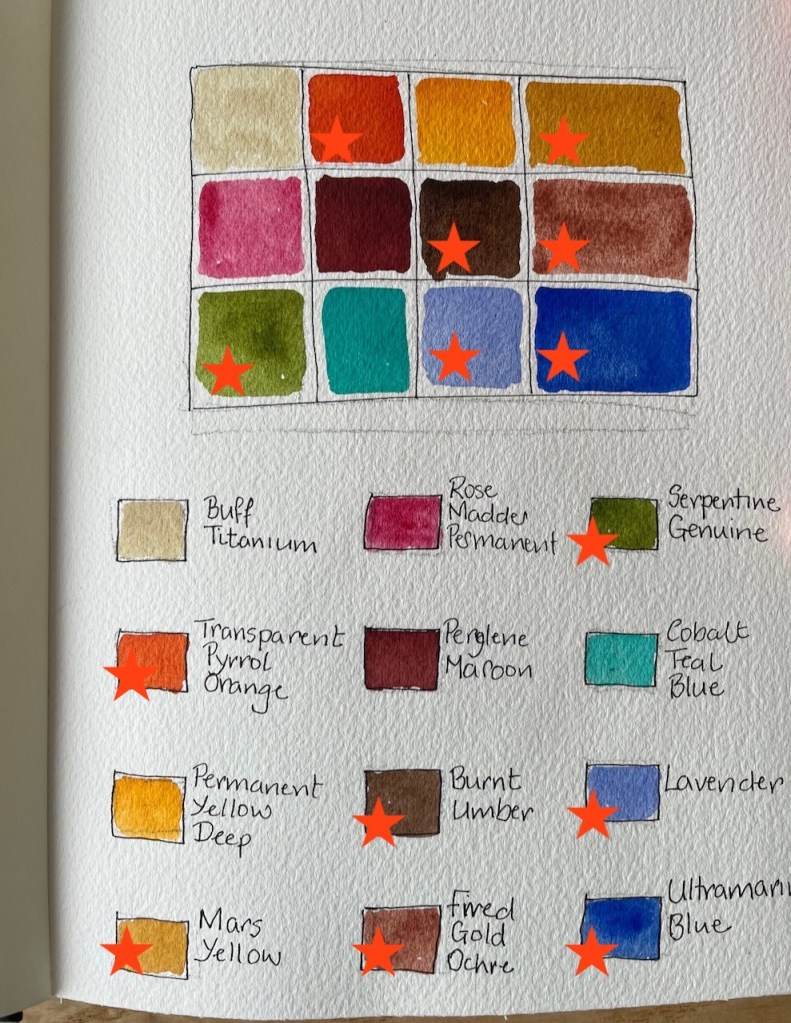 Buff
Titanium
Transparent
Pyrrol
Orange
Permanent
Yellow
Deep
Mars
Yellow
Rose
Madder
Permanent
Perylene
Maroon
Burnt
Umber
Fired
Gold
Ochre
Serpentine
Genuine
Cobalt
Teal
Blue
Lavender
Ultramari
Blue